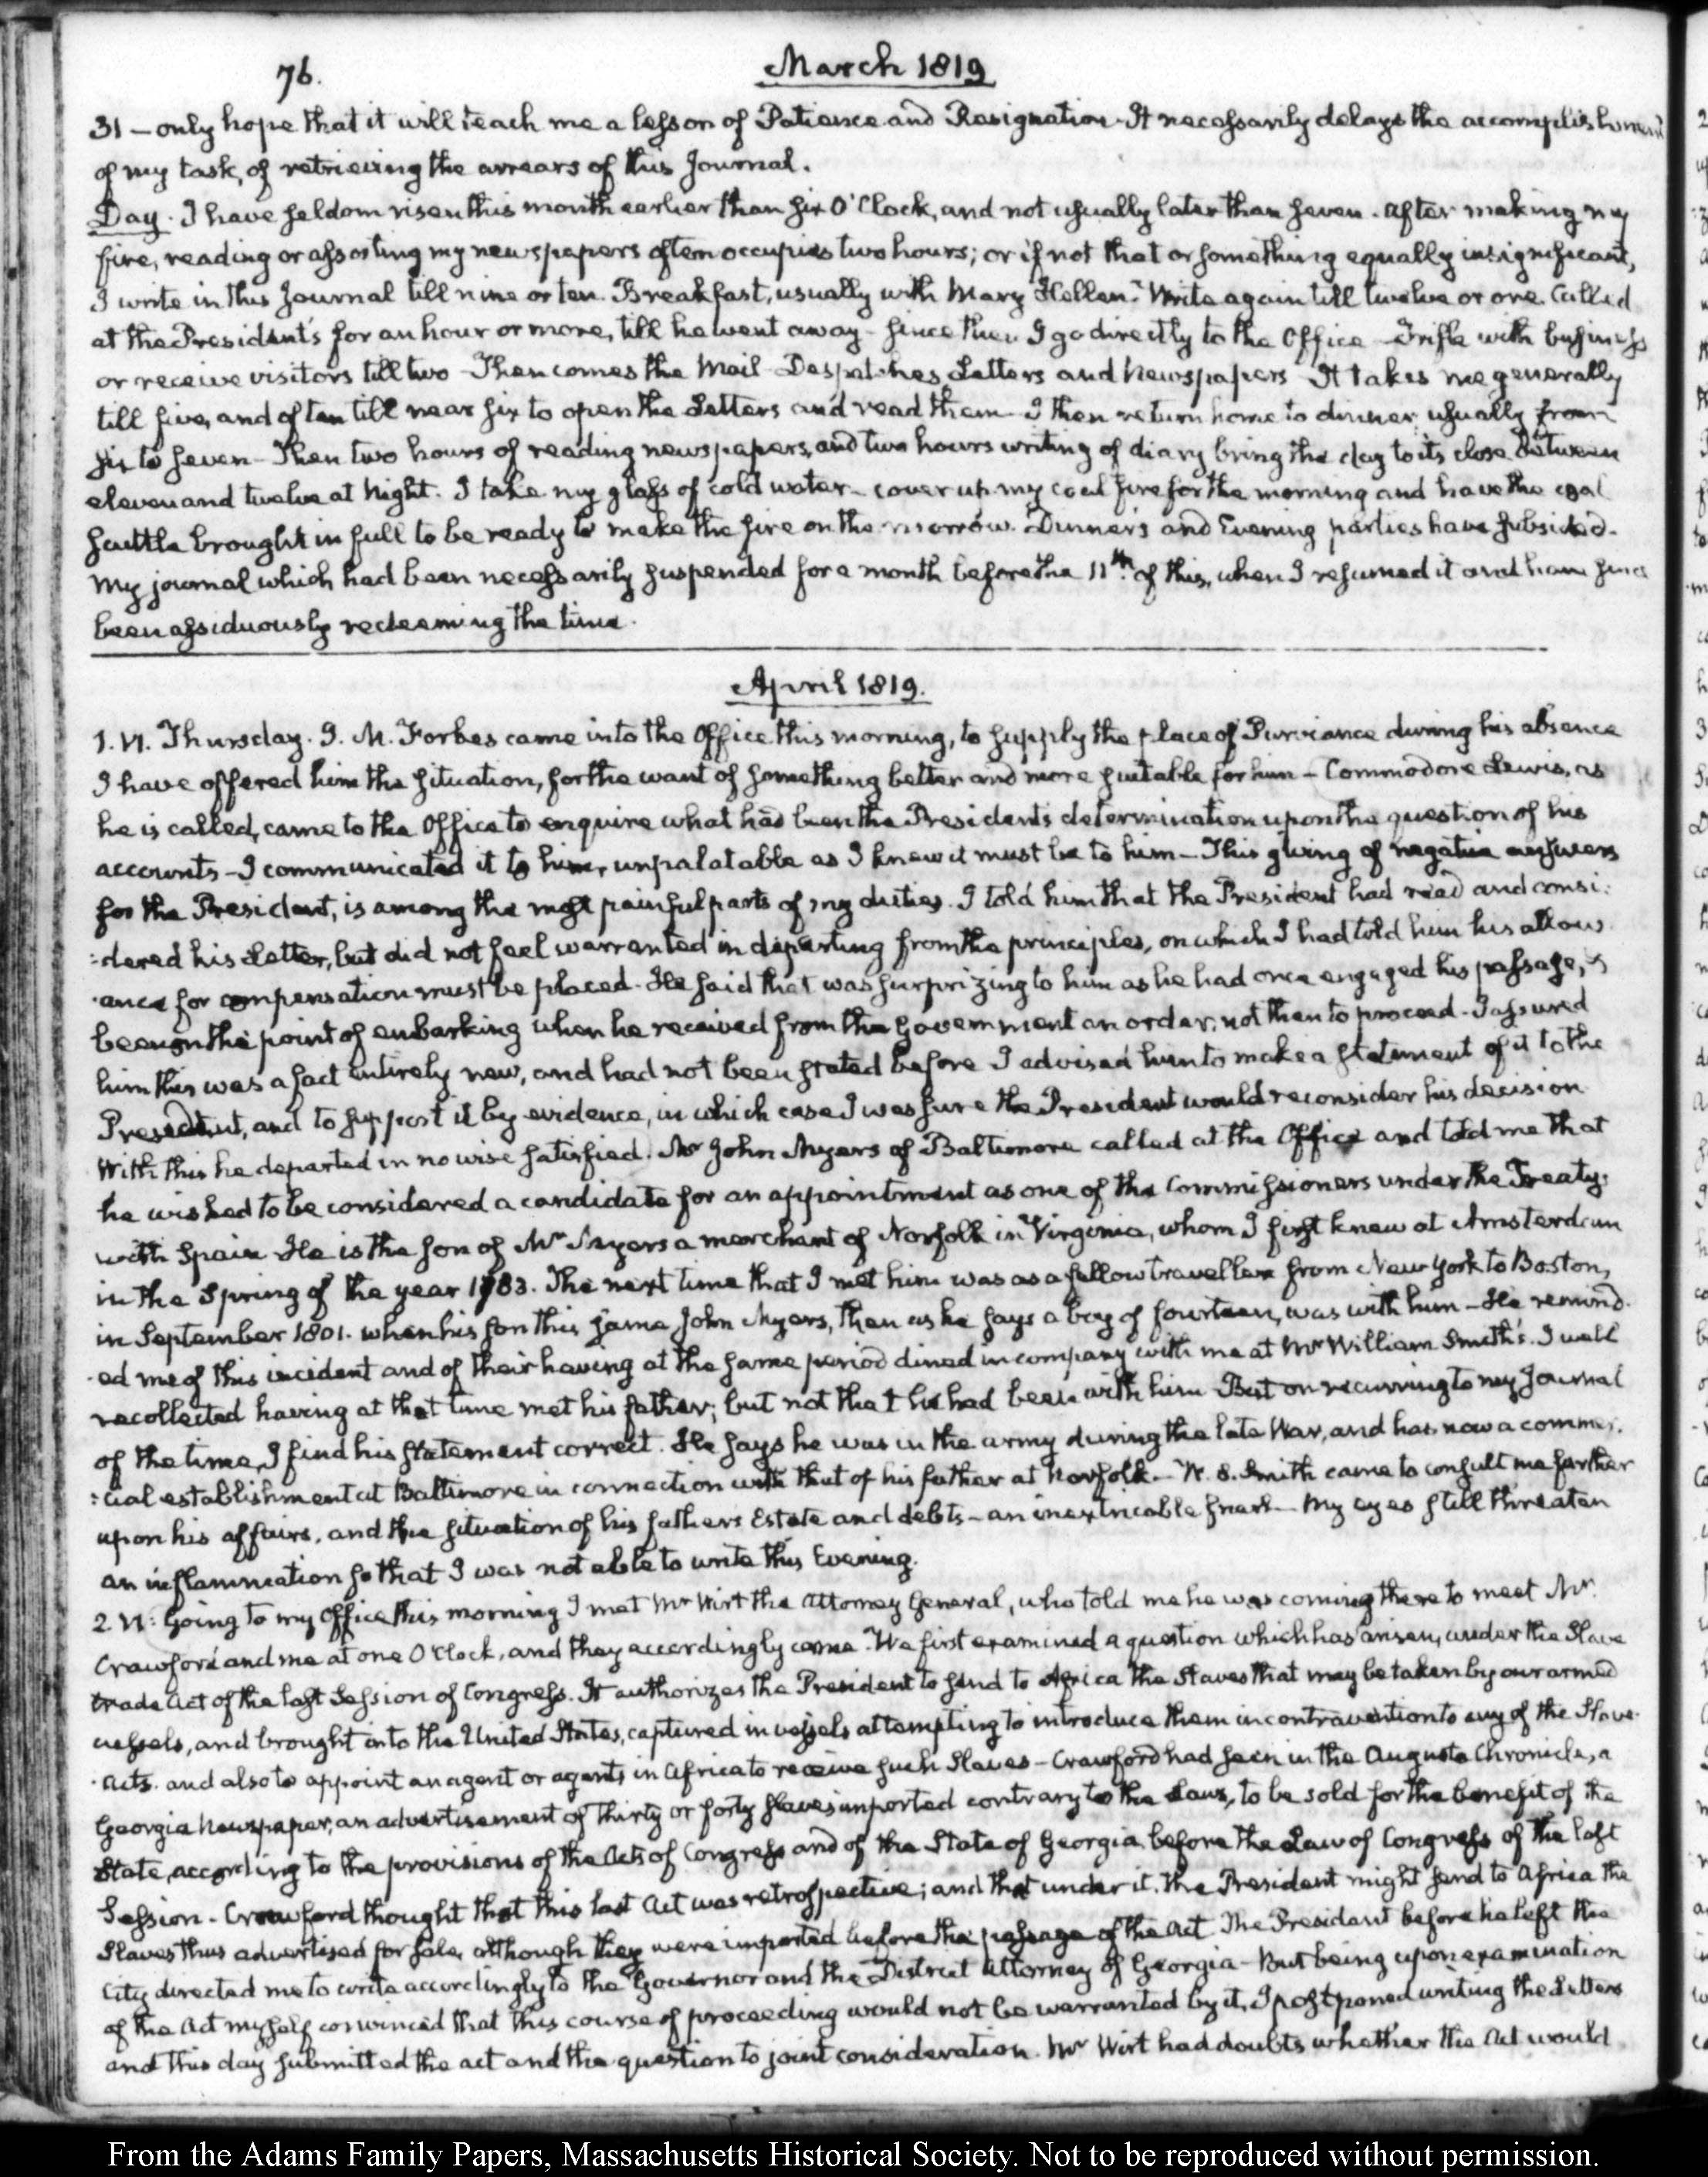 76.
March 1819
31 — only hope that it will teach me a lesson of Patience and Resignation. It necessarily delays the accomplishment
of my task, of retrieving the arrears of this Journal.
Day. I have seldom risen this month earlier than six O'Clock, and not usually later than seven. After making my
fire, reading or assorting my newspapers often occupies two hours; or if not that or something equally insignificant,
I write in this Journal till nine or ten. Breakfast, usually with Mary Hellen. Write again till twelve or one. Called
at the President's for an hour or more, till he went away – since then I go directly to the Office – Trifle with business
or receive visitors till two – Then comes the Mail – Despatches, Letters and Newspapers – It takes me generally
till five, and often till near six to open the Letters and read them – I then return home to dinner, usually from
six to seven – Then two hours of reading newspapers, and two hours writing of diary bring the day to its close between
eleven and twelve at Night. I take my glass of cold water – cover up my coal fire for the morning and have the coal
scuttle brought in full to be ready to make the fire on the morrow. Dinners and Evening parties have subsided.
My journal which had been necessarily suspended for a month before the 11th. of this, when I resumed it and have since
been assiduously redeeming the time.
April 1819.
1. VI. Thursday. J. M. Forbes came into the Office this morning, to supply the place of Purviance during his absence
I have offered him the situation, for the want of something better and more suitable for him – Commodore Lewis, as
he is called, came to the Office to enquire what had been the President's determination upon the question of his
accounts – I communicated it to him, unpalatable as I knew it must be to him – This giving of negative answers
for the President, is among the most painful parts of my duties. I told him that the President had read and consi:
:dered his Letter, but did not feel warranted in departing from the principles, on which I had told him his allow
ance for compensation must be placed. He said that was surprizing to him as he had once engaged his passage, &
been on the point of embarking when he received from the Government an order, not then to proceed. I assured
him this was a fact entirely new, and had not been stated before I advised him to make a statement of it to the
President, and to support it by evidence, in which case I was sure the President would reconsider his decision
With this he departed in no wise satisfied. Mr John Myers of Baltimore called at the Office and told me that
he wished to be considered a candidate for an appointment as one of the Commissioners under the Treaty
with Spain. He is the son of Mr Myers a merchant of Norfolk in Virginia, whom I first knew at Amsterdam
in the Spring of the year 1783. The next time that I met him was as a fellow traveller from New York to Boston,
in September 1801. when his son this same John Myers, then as he says a boy of fourteen, was with him – He remind
ed me of this incident and of their having at the same period dined in company with me at Mr William Smith's. I well
recollected having at that time met his father; but not that he had been with him. But on recurring to my Journal
of the time, I find his statement correct. He says he was in the army during the late War, and has now a commer:
:cial establishment at Baltimore in connection with that of his father at Norfolk – W. S. Smith came to consult me further
upon his affairs, and the situation of his fathers Estate and debts – an inextricable snarl – My eyes still threaten
an inflammation so that I was not able to write this Evening.
2. VI: Going to my Office this morning I met Mr Wirt the Attorney General, who told me he was coming there to meet Mr.
Crawford and me at one O'Clock, and they accordingly came. We first examined a question which has arisen, under the Slave
trade Act of the last Session of Congress. It authorizes the President to send to Africa the Slaves that may be taken by our armed
vessels, and brought into the United States, captured in vessels attempting to introduce them in contravention to any of the Slave
Acts. and also to appoint an agent or agents in Africa to receive such Slaves – Crawford had seen in the Augusta Chronicle, a
Georgia Newspaper, an advertisement of thirty or forty slaves imported contrary to the Laws, to be sold for the benefit of the
State, according to the provisions of the Acts of Congress and of the State of Georgia before the Law of Congress of the last
Session – Crawford thought that this last Act was retrospective; and that under it, the President might send to Africa the
Slaves thus advertised for sale, although they were imported before the passage of the Act. The President before he left the
City directed me to write accordingly to the Governor and the District Attorney of Georgia – But being upon examination
of the Act myself convinced that this course of proceeding would not be warranted by it, I postponed writing the Letters
and this day submitted the act and the question to joint consideration. Mr Wirt had doubts whether the Act would
From the Adams Family Papers, Massachusetts Historical Society. Not to be reproduced without permission.